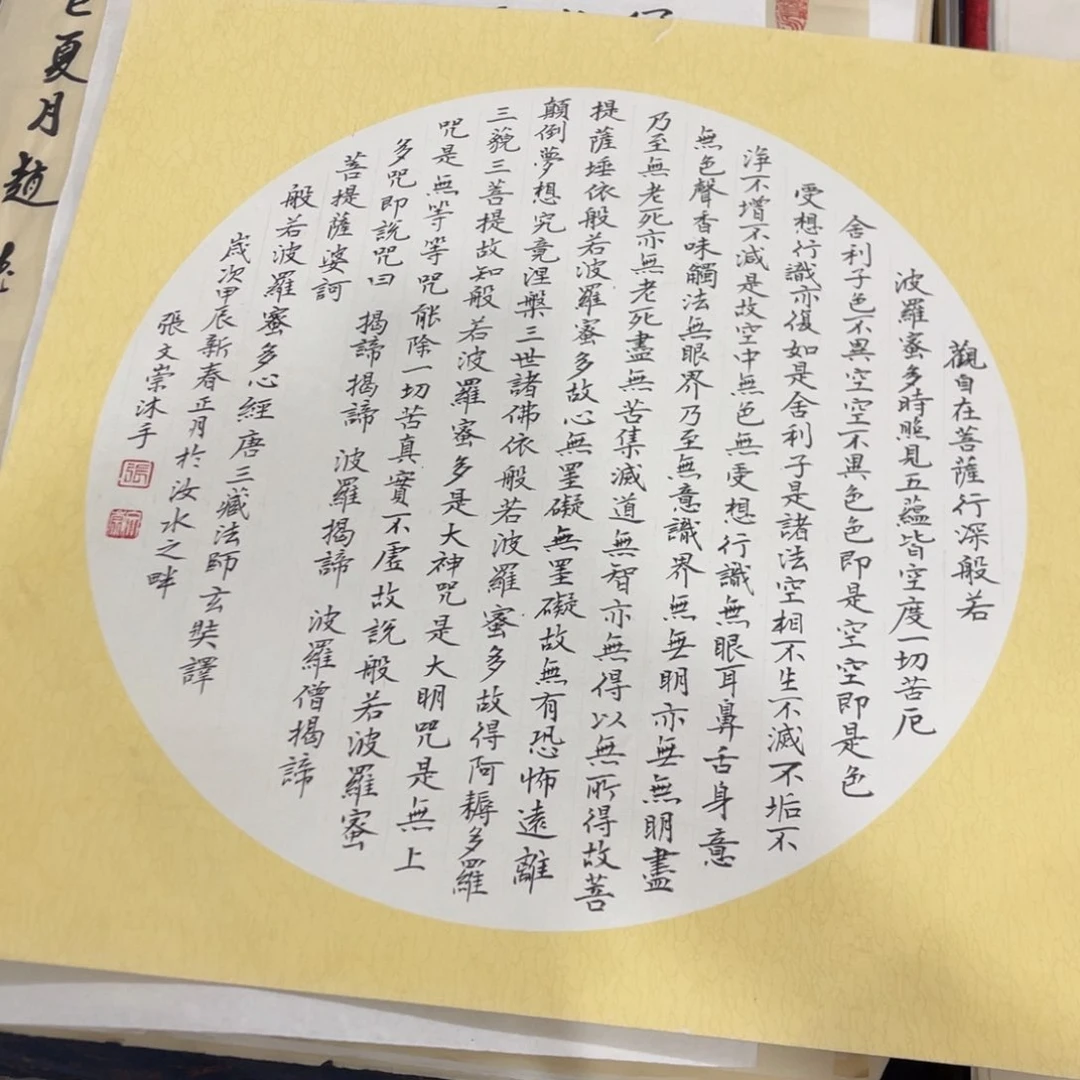 觀自在菩薩行深般若
波羅蜜多時照見五蘊皆空度一切苦厄
舍利子色不異空空不異色色即是空空即是色
受想行識亦復如是舍利子是諸法空相不生不滅不垢不
淨不增不減是故空中無色無受想行識無眼耳鼻舌身意
無色聲香味觸法無眼界乃至無意識界無無明亦無無明盡
乃至無老死亦無老死盡無苦集滅道無智亦無得以無所得故菩
提薩埵依般若波羅蜜多故心無罣礙無罣礙故無有恐怖遠離
顛倒夢想究竟涅槃三世諸佛依般若波羅蜜多故得阿耨多羅
三藐三菩提故知般若波羅蜜多是大神咒是大明咒是無上
咒是無等等咒能除一切苦真實不虛故說般若波羅蜜
多咒即說咒曰 揭諦揭諦 波羅揭諦 波羅僧揭諦
菩提薩婆訶
般若波羅蜜多心經唐三藏法師玄奘譯
歲次甲辰新春正月於汝水之畔
張文崇沐手
張
夏月趙